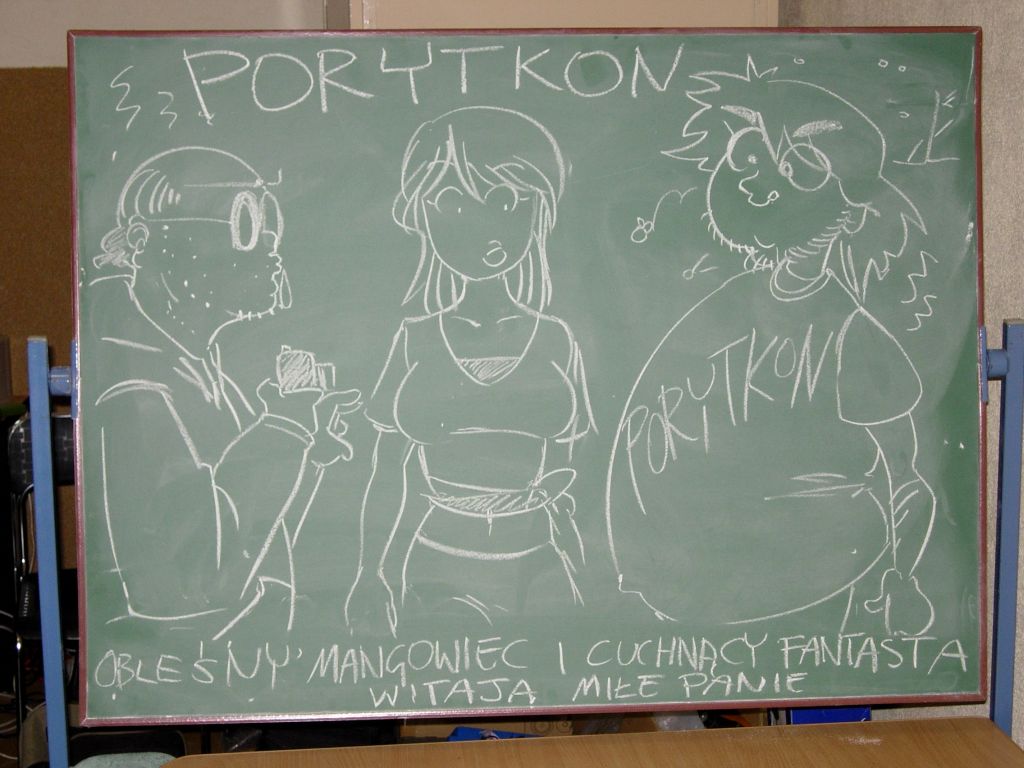 PORYTKON
PORYTKON
OBLEŚNY MANGOWIEC I CUCHNĄCY FANTASTA
WITAJĄ MIŁE PANIE